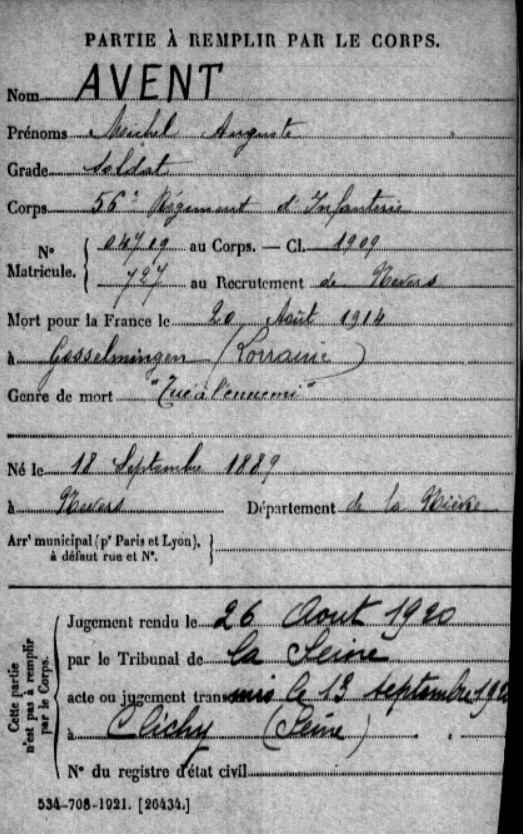 PARTIE À REMPLIR PAR LE CORPS.
Nom AVENT
Prénoms Michel Auguste
Grade Soldat
Corps 56e Régiment d'Infanterie
N° Matricule. { 04709 au Corps. — Cl. 1909
727 au Recrutement de Nevers
Mort pour la France le 20 Août 1914
à Gosselmingen (Lorraine)
Genre de mort "Tué à l'ennemi"
Né le 18 Septembre 1889
à Nevers Département de la Nièvre
Arrt municipal (pr Paris et Lyon),
à défaut rue et N°. }
Cette partie n'est pas à remplir par le Corps.
Jugement rendu le 26 Aout 1920
par le Tribunal de la Seine
acte ou jugement transmis le 13 septembre 192
à Clichy (Seine)
N° du registre d'état civil
534-708-1921. [26434.]